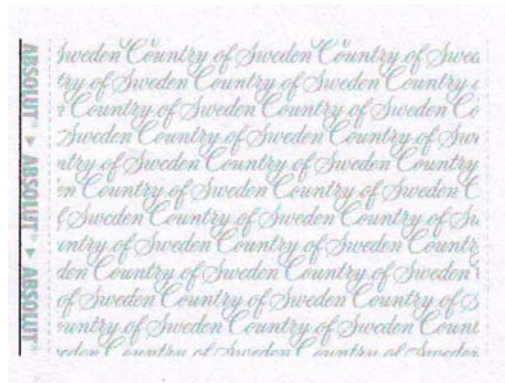 ABSOLUT ABSOLUT ABSOLUT
Sweden Country of Sweden Country of Swed
try of Sweden Country of Sweden Country
Country of Sweden Country of Sweden Co
Sweden Country of Sweden Country of Swe
ntry of Sweden Country of Sweden Country
en Country of Sweden Country of Sweden C
f Sweden Country of Sweden Country of Sw
untry of Sweden Country of Sweden Countr
den Country of Sweden Country of Sweden
of Sweden Country of Sweden Country of S
ountry of Sweden Country of Sweden Count
weden Country of Sweden Country of Sweden